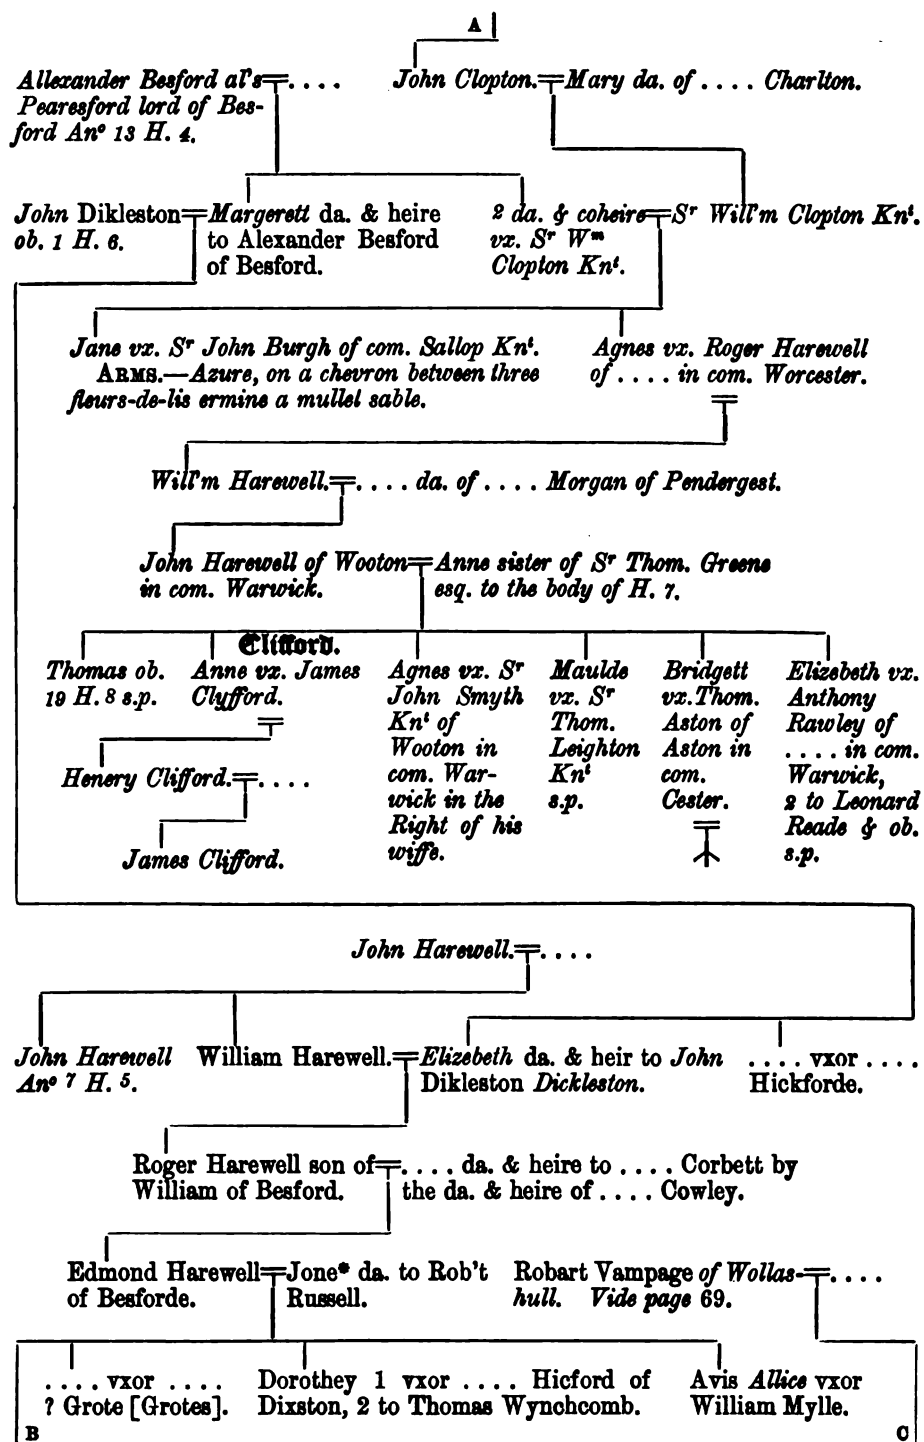 A
Allexander Besford al's=. . . . John Clopton.=Mary da. of . . . . Charlton.
Pearesford lord of Bes-
ford An° 13 H. 4.
John Dikleston=Margerett da. & heire
ob. 1 H. 6. to Alexander Besford
of Besford.
2 da. & coheire=Sʳ Will'm Clopton Knᵗ.
vx. Sʳ Wᵐ
Clopton Knᵗ.
Jane vx. Sʳ John Burgh of com. Sallop Knᵗ.
ARMS.—Azure, on a chevron between three
fleurs-de-lis ermine a mullet sable.
Agnes vx. Roger Harewell
of . . . . in com. Worcester.
Will'm Harewell.=. . . . da. of . . . . Morgan of Pendergest.
John Harewell of Wooton=Anne sister of Sʳ Thom. Greene
in com. Warwick. esq. to the body of H. 7.
Clifford.
Thomas ob.
19 H. 8 s.p.
Anne vx. James
Clyfford.
Henery Clifford.=. . . .
James Clifford.
Agnes vx. Sʳ
John Smyth
Knᵗ of
Wooton in
com. War-
wick in the
Right of his
wiffe.
Maulde
vx. Sʳ
Thom.
Leighton
Knᵗ
s.p.
Bridgett
vx. Thom.
Aston of
Aston in
com.
Cester.
Elizebeth vx.
Anthony
Rawley of
. . . . in com.
Warwick,
2 to Leonard
Reade & ob.
s.p.
John Harewell.=. . . .
John Harewell
An° 7 H. 5.
William Harewell.=Elizebeth da. & heir to John
Dikleston Dickleston.
. . . . vxor . . . .
Hickforde.
Roger Harewell son of=. . . . da. & heire to . . . . Corbett by
William of Besford. the da. & heire of . . . . Cowley.
Edmond Harewell=Jone* da. to Rob't
of Besforde. Russell.
Robart Vampage of Wollas-=. . . .
hull. Vide page 69.
. . . . vxor . . . .
? Grote [Grotes].
Dorothey 1 vxor . . . . Hicford of
Dixston, 2 to Thomas Wynchcomb.
Avis Allice vxor
William Mylle.
B C